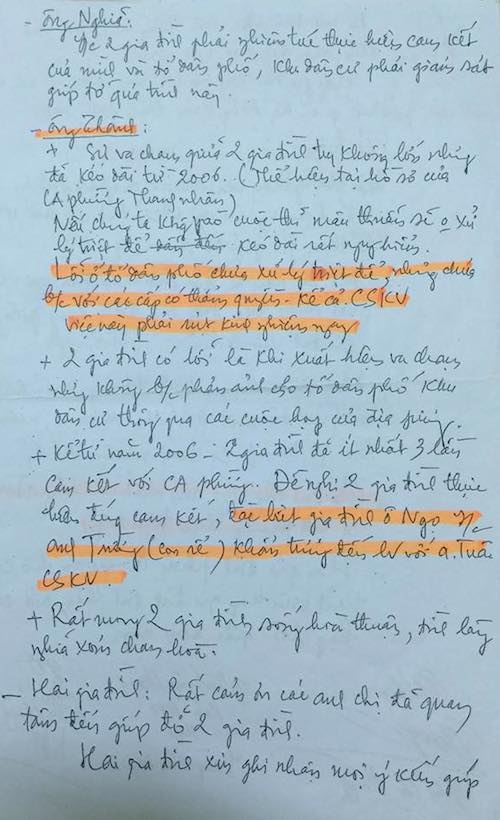 - Ông Nghĩa:
Y/c 2 gia đình phải nghiêm túc thực hiện cam kết
của mình và tổ dân phố, khu dân cư phải giám sát
giúp đỡ quá trình này.
- Ông Thành:
+ Sự va chạm giữa 2 gia đình tuy không lớn nhưng
đã kéo dài từ 2006. (Thể hiện tại hồ sơ của
CA phường Thanh Nhàn)
Nếu chúng ta không vào cuộc thì mâu thuẫn sẽ o xử
lý triệt để kéo dài rất nguy hiểm.
Lỗi ở tổ dân phố chưa xử lý triệt để, nhưng chưa
b/c với các cấp có thẩm quyền - kể cả CSKV
việc này phải rút kinh nghiệm ngay
+ 2 gia đình có lỗi là khi xuất hiện va chạm
nhưng không b/c phản ánh cho tổ dân phố khu
dân cư thông qua các cuộc họp của địa phương.
+ Kể từ năm 2006 - 2 gia đình đã ít nhất 3 lần
cam kết với CA phường. Đề nghị 2 gia đình thực
hiện đúng cam kết, đặc biệt gia đình ô Ngọ y/c
anh (con rể) khẩn trương đến lv với a. Tuấn
CSKV.
+ Rất mong 2 gia đình sống hoà thuận, tình làng
nghĩa xóm chan hoà.
- Hai gia đình: Rất cảm ơn các anh chị đã quan
tâm đến giúp đỡ 2 gia đình.
Hai gia đình xin ghi nhận mọi ý kiến giúp